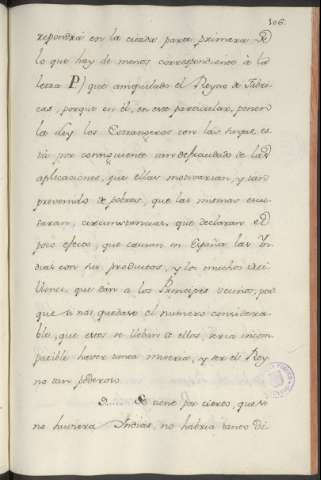 106.
repondra en la citada parte primera, P
lo que hay de menos correspondiente à la
letra P) que aniquilado el Reyno de Fabri-
cas, porque en èl, en este particular, ponen
la ley los Estrangeros con las suyas, es-
tà por consiguiente tan defraudado de las
aplicaciones, que ellas motivarian, y tan
prevenido de pobres, que las mismas escu-
saran, circunstancias, que declaran el
poco efecto, que causan en España las Yn-
dias con sus productos, y los muchos Uti-
lisimos, que dàn a los Principes vecinos; por
que si nos quedase el numero considera-
ble, que estos se lleban à ellos, seria incom-
patible haver tanta miseria, y ser el Rey-
no tan poderoso.
Se tiene por cierto, que si
no huviera Yndias, no habria tanto di